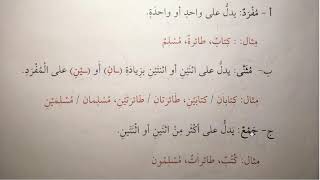 أ - مُفْرَدٌ: يدلُّ على واحدٍ أو واحدَةٍ.
مِثال: : كِتابٌ، طائرةٌ، مُسْلِمٌ
ب- مُثَنّى: يدلُّ على اثنَينِ أو اثنَتَيْنِ بزيادَةِ (سانِ) أَو (سيْنِ) على الْمُفْرَدِ.
مِثال: كتابانِ / كتابَيْنِ، طائرَتانِ / طائرتَيْنِ، مُسْلِمان / مُسْلِمَيْنِ
ج- جَمْعٌ: يَدلُّ على أكْثَرَ مِنْ اثنَينِ أو اثْنَتَيْنِ.
مِثال: كُتُبٌ، طائراتٌ، مُسْلِمُون